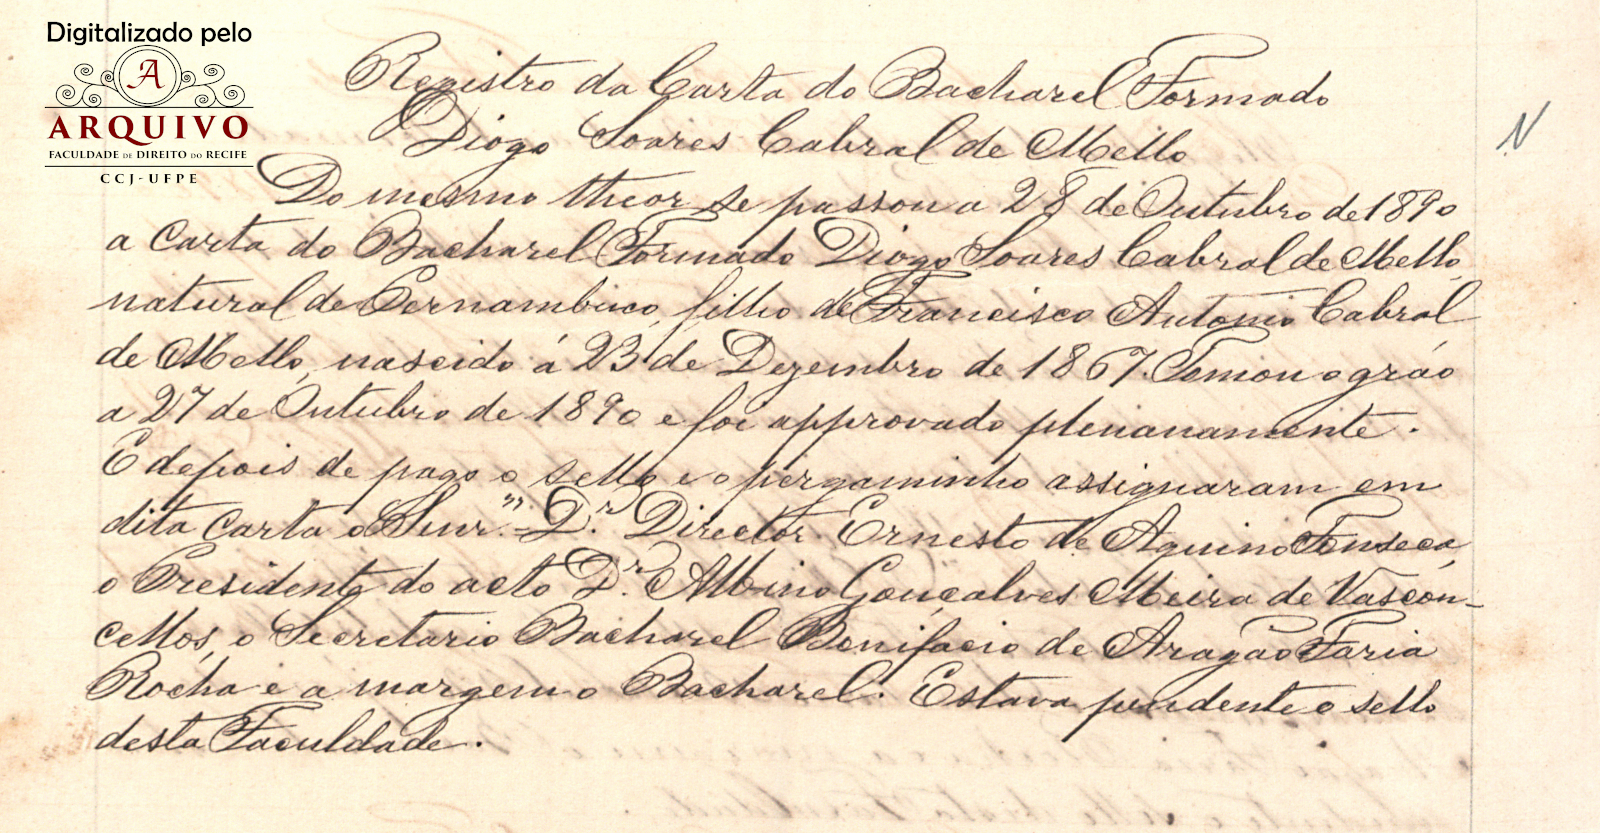 Digitalizado pelo
A
ARQUIVO
FACULDADE DE DIREITO DO RECIFE
CCJ-UFPE
Registro da Carta do Bacharel Formado
Diogo Soares Cabral de Mello
N
Do mesmo theor se passou a 28 de Outubro de 1890
a Carta do Bacharel Formado Diogo Soares Cabral de Mello,
natural de Pernambuco, filho de Francisco Antonio Cabral
de Mello, nascido á 23 de Dezembro de 1867. Tomou o gráo
a 27 de Outubro de 1890 e foi approvado plenanamente.
E depois de pago o sello e o pergaminho assignaram em
dita Carta o Snr. Dr. Director Ernesto de Aquino Fonseca
o Presidente do acto Dr. Albino Gonçalves Meira de Vascon-
cellos, o Secretario Bacharel Bonifacio de Aragão Faria
Rocha e a margem o Bacharel. Estava pendente o sello
desta Faculdade.